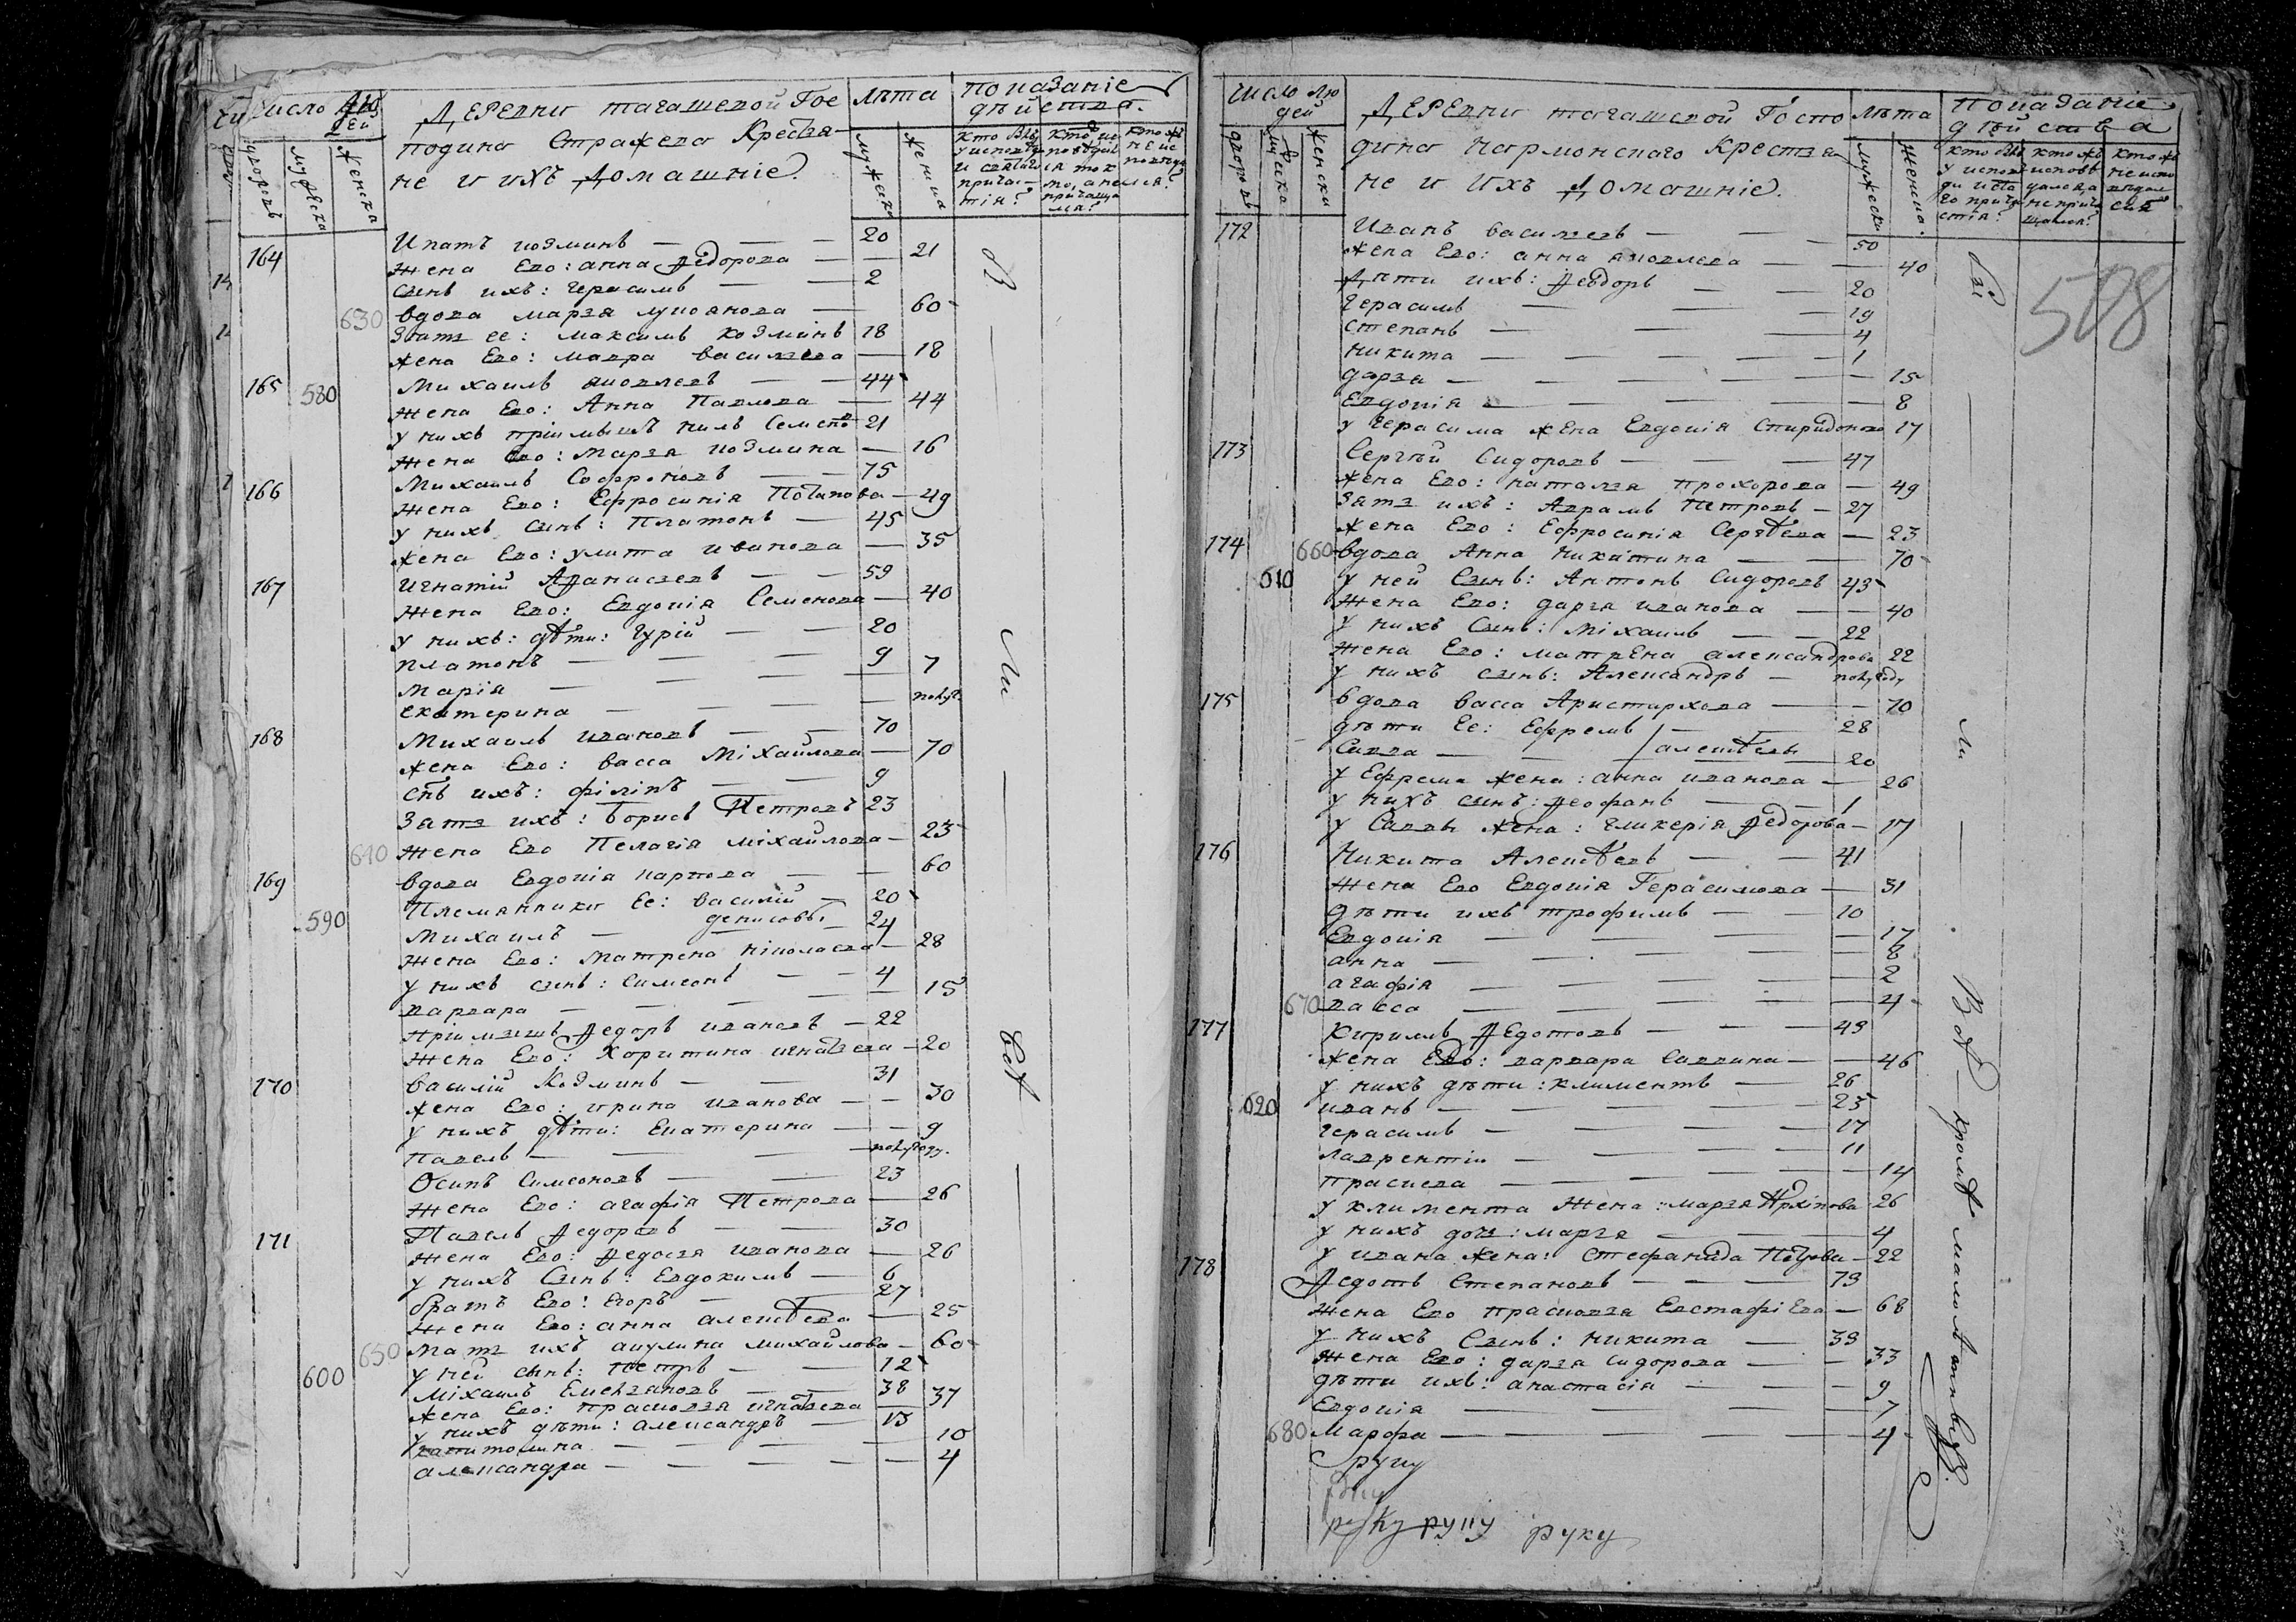 число людей
Деревни тагашевой Гос
подина Стражева Крестья-
не и ихъ Домашніе
лѣта
показаніе
дѣйства.
дворовъ
мужеска
женска
мужеска
женска
164 Ипатъ козминъ — 20
жена Ево: анна Ѳедорова — 21
сынъ ихъ: герасимъ — 2
630 вдова марья лукоянова — 60
Зять ее: максимъ козминъ 18
жена Ево: мавра васильева — 18
165 580 Михаилъ яковлевъ — 44
жена Ево: Анна Павлова — 44
у нихъ пріимышъ нилъ Семеновъ 21
жена Ево: Марья козмина — 16
166 Михаилъ Софроновъ — 75
жена Ево: Ефросинія Потапова — 49
у нихъ сынъ: Платонъ — 45
жена Ево: улита иванова — 35
167 игнатій Аѳанасьевъ — 59
жена Ево: Евдокія Семенова — 40
у нихъ: дѣти: гурій — 20
платонъ — 9
марія — 7
екатерина — полуг.
168 Михаилъ ивановъ — 70
жена Ево: васса Міхайлова — 70
снъ ихъ: філіпъ — 9
Зять ихъ: борисъ Петровъ 23
640 жена Ево Пелагія міхайлова — 23
169 вдова Евдокія карпова — 60
Племянники Ее: василій — 20
590 Михаилъ — денисовы — 24
жена Ево: Матрена ніколаева — 28
у нихъ сынъ: Симеонъ — 4
варвара — 15
пріимышъ Ѳедоръ ивановъ — 22
жена Ево: Харитина игнатьева — 20
170 василій Козминъ — 31
жена Ево: ирина иванова — 30
у нихъ дѣти: Екатерина — 9
Павелъ — полугоду.
Осипъ Симеоновъ — 23
жена Ево: агафія Петрова — 26
171 Павелъ Ѳедоровъ — 30
жена Ево: Ѳедосья иванова — 26
у нихъ Сынъ: Евдокимъ — 6
братъ Ево: Егоръ — 27
жена Ево: анна алексѣева — 25
650 мать ихъ акулина михайлова — 60
600 у ней сынъ: петръ — 12
Міхаилъ Емельяновъ — 38
жена Ево: прасковья игнатьева — 37
у нихъ дѣти: александръ — 13
капитолина — 10
александра — 4
вси
число лю
дей
Деревни тагашевой Госпо
дина Кармонскаго Крестья
не и ихъ Домашніе.
лѣта
показаніе
дѣйства
дворовъ
мужеска
женска
мужеска
женска.
508
172 Иванъ васильевъ — 50
жена Ево: анна яковлева — 40
Дѣти ихъ: Ѳеодоръ — 20
герасимъ — 19
степанъ — 4
никита — 1
дарья — 15
Евдокія — 8
у герасима жена Евдокія Спиридонова 17
173 Сергѣй Сидоровъ — 47
жена Ево: наталья прохорова — 49
Зять ихъ: Аврамъ Петровъ — 27
жена Ево: Ефросинія Сергѣева — 23
174 660 вдова Анна никитина — 70
610 у ней Сынъ: Антонъ Сидоровъ 43
жена Ево: дарья иванова — 40
у нихъ Сынъ: Міхаилъ — 22
жена Ево: матрена александрова 22
у нихъ сынъ: Александръ — полугоду
175 вдова васса Аристархова — 70
дѣти Ее: Ефремъ — 28
Савва — алексѣевы — 20
у Ефрема жена: анна иванова — 26
у нихъ сынъ: Ѳеофанъ — 1
у Саввы жена: гликерія Ѳедорова — 17
176 Никита Алексѣевъ — 41
жена Ево Евдокія Герасимова — 31
дѣти ихъ трофимъ — 10
Евдокія — 17
анна — 8
агафія — 2
670 васса — 4
177 Кирилъ Ѳедотовъ — 49
жена Ево: варвара саввина — 46
у нихъ дѣти: климентъ — 26
620 иванъ — 25
герасимъ — 17
лаврентій — 11
прасковья — 14
у климента жена: марья Архіпова 26
у нихъ дочь: марья — 4
у ивана жена: Стефанида Петрова — 22
178 Ѳедотъ Степановъ — 79
жена Ево прасковья Евстафіева — 68
у нихъ Сынъ: никита — 39
жена Ево: дарья сидорова — 33
дѣти ихъ: анастасія — 9
Евдокія — 7
680 Марфа — 4
руку
руку руку руку
кромѣ малолѣтныхъ.